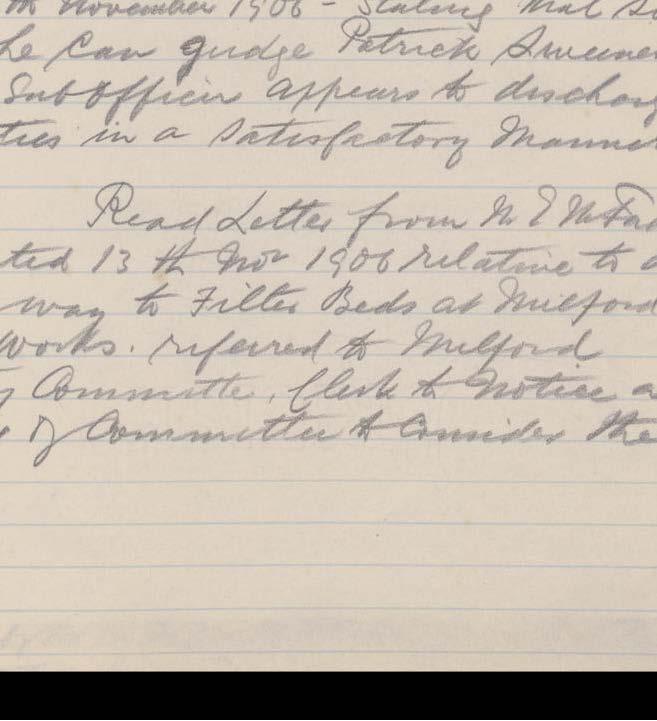 th November 1906 - Stating that
he can gudge Patrick Sweene
SubOfficer appears to discharg
ties in a Satisfactory Manner
Read Letter from Mr E McFad
ted 13 th Nov 1906 relative to a
way to Filter Beds at Milford
Works. referred to Milford
y Committe, Clerk to Notice a
of Committee to Consider the